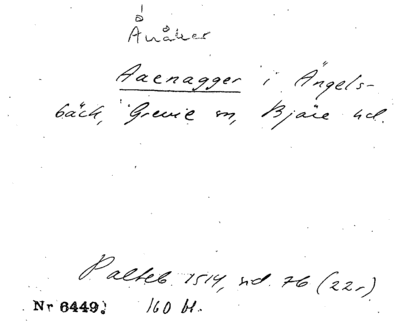 Ånåker
Aaenagger i Ängels-
bäck, Grevie sn, Bjäre hd.
Palteb. 1514, sid. 76 (22r)
Nr 6449. 160 bl.